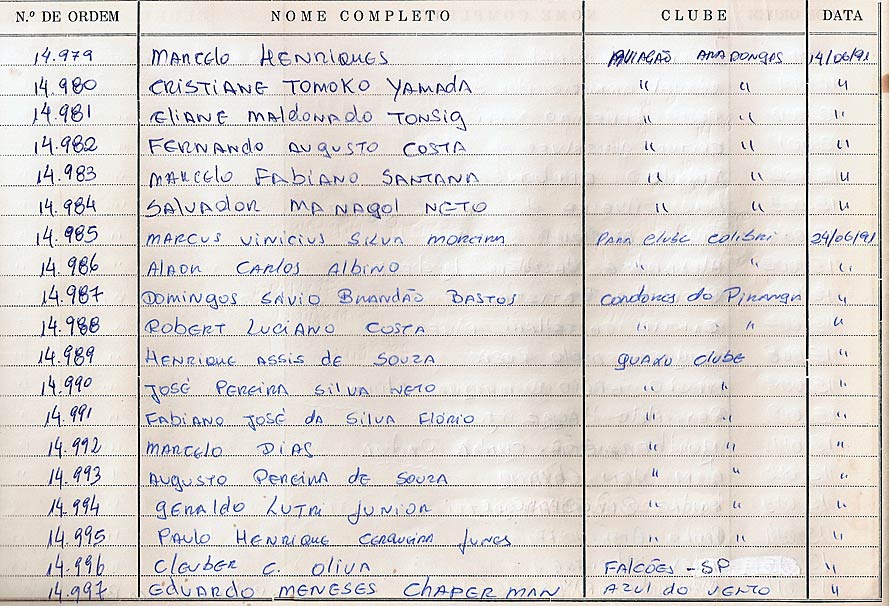 N.º DE ORDEM NOME COMPLETO CLUBE DATA
14.979 MARCELO HENRIQUES AVIAÇÃO ARAPONGAS 14/06/91
14.980 CRISTIANE TOMOKO YAMADA " " "
14.981 ELIANE MALDONADO TONSIG " " "
14.982 FERNANDO AUGUSTO COSTA " " "
14.983 MARCELO FABIANO SANTANA " " "
14.984 SALVADOR MANAGOL NETO " " "
14.985 MARCUS VINICIUS SILVA MOREIRA PARA CLUBE COLIBRI 24/06/91
14.986 ALAOR CARLOS ALBINO " " "
14.987 DOMINGOS SÁVIO BRANDÃO BASTOS CONDORES DO PIRANGA "
14.988 ROBERT LUCIANO COSTA " " "
14.989 HENRIQUE ASSIS DE SOUZA GUAXU CLUBE "
14.990 JOSÉ PEREIRA SILVA NETO " " "
14.991 FABIANO JOSÉ DA SILVA FLÓRIO " " "
14.992 MARCELO DIAS " " "
14.993 AUGUSTO PEREIRA DE SOUZA " " "
14.994 GERALDO LUTRI JUNIOR " " "
14.995 PAULO HENRIQUE CERQUEIRA JUNES " " "
14.996 CLEUBER C. OLIVA FALCÕES - SP "
14.997 EDUARDO MENESES CHAPERMAN AZUL DO VENTO "